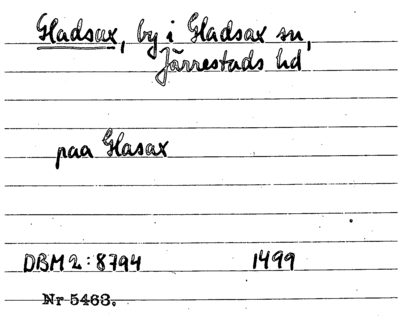 Gladsax, by i Gladsax sn,
Järrestads hd
paa Glasax
DBM 2:8794 1499
Nr 5463.